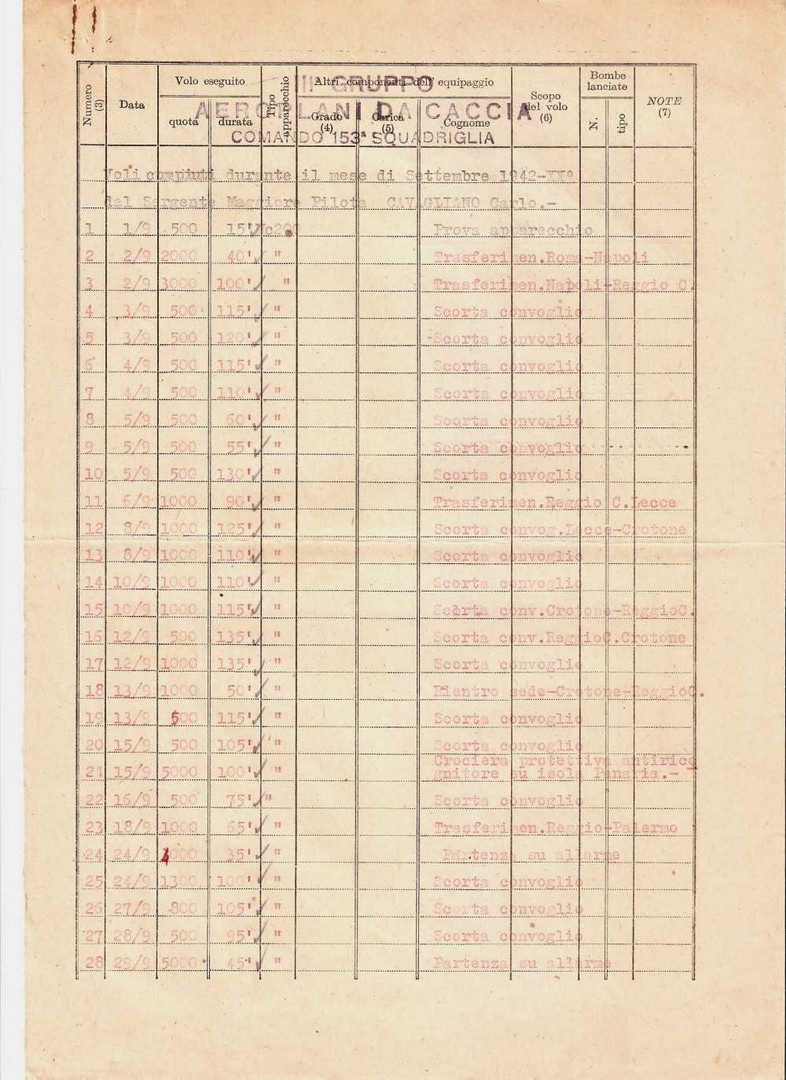 Numero (3) Data Volo eseguito quota durata Tipo apparecchio Altri componenti dell'equipaggio Grado (4) Carica (5) Cognome Scopo del volo (6) Bombe lanciate N. tipo NOTE (7)
GRUPPO
AEROPLANI DA CACCIA
COMANDO 153ª SQUADRIGLIA
Voli compiuti durante il mese di Settembre 1942-XXº
dal Sergente Maggiore Pilota CAVAGLIANO Carlo.-
1 1/9 500 15' Mc200 Prova apparecchio
2 2/9 2000 40' " Trasferimen.Roma-Napoli
3 2/9 3000 100' " Trasferimen.Napoli-Reggio C.
4 3/9 500 115' " Scorta convoglio
5 3/9 500 120' " Scorta convoglio
6 4/9 500 115' " Scorta convoglio
7 4/9 500 110' " Scorta convoglio
8 5/9 500 60' " Scorta convoglio
9 5/9 500 55' " Scorta convoglio
10 5/9 500 130' " Scorta convoglio
11 6/9 1000 90' " Trasferimen.Reggio C.Lecce
12 8/9 1000 125' " Scorta convog.Lecce-Crotone
13 8/9 1000 110' " Scorta convoglio
14 10/9 1000 110' " Scorta convoglio
15 10/9 1000 115' " Scorta conv.Crotone-ReggioC.
16 12/9 500 135' " Scorta conv.ReggioC.Crotone
17 12/9 1000 135' " Scorta convoglio
18 13/9 1000 50' " Rientro sede-Crotone-ReggioC.
19 13/9 500 115' " Scorta convoglio
20 15/9 500 105' " Scorta convoglio
21 15/9 5000 100' " Crociera protettiva antirico
gnitore su isola Panaria.-
22 16/9 500 75' " Scorta convoglio
23 18/9 1000 65' " Trasferimen.Reggio-Palermo
24 24/9 4000 35' " Partenza su allarme
25 24/9 1300 100' " Scorta convoglio
26 27/9 800 105' " Scorta convoglio
27 28/9 500 95' " Scorta convoglio
28 29/9 5000 45' " Partenza su allarme